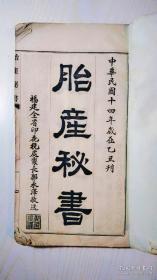 中華民國十四年歲在乙丑刊
胎產秘書
福建全省印花稅處處長鄭永澤敬送
胎產秘書